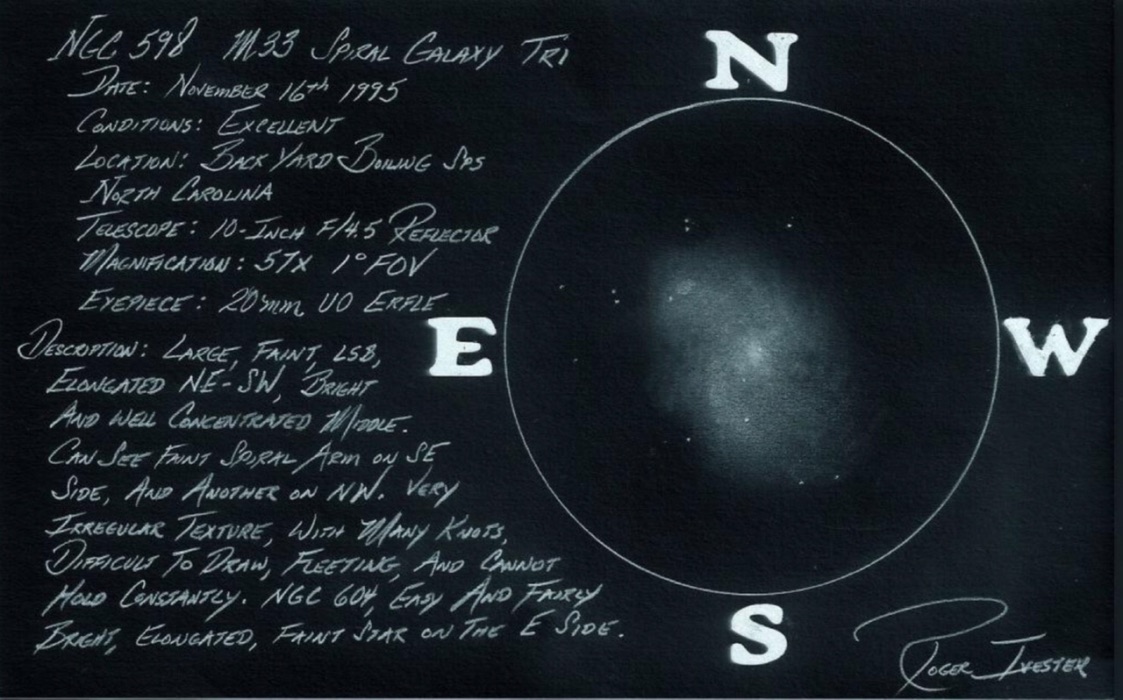 NGC 598 M33 Spiral Galaxy Tri
Date: November 16th 1995
Conditions: Excellent
Location: Back Yard Boiling Sps
North Carolina
Telescope: 10-Inch F/4.5 Reflector
Magnification: 57x 1° FOV
Eyepiece: 20mm UO Erfle
Description: Large, Faint, LSB,
Elongated NE-SW, Bright
And Well Concentrated Middle.
Can See Faint Spiral Arm on SE
Side, And Another on NW. Very
Irregular Texture, With Many Knots,
Difficult To Draw, Fleeting, And Cannot
Hold Constantly. NGC 604, Easy And Fairly
Bright, Elongated, Faint Star on The E Side.
N
E
W
S
Roger Ivester